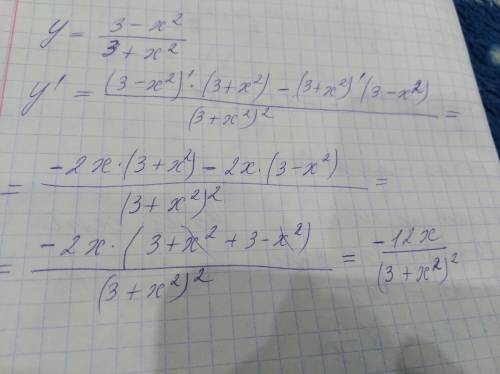 y = (3 - x²)/(3 + x²)
y' = ((3 - x²)' · (3 + x²) - (3 + x²)' (3 - x²))/(3 + x²)² =
= (-2x · (3 + x²) - 2x · (3 - x²))/(3 + x²)² =
= (-2x · (3 + x² + 3 - x²))/(3 + x²)² = (-12x)/(3 + x²)²